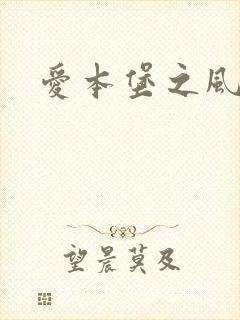 愛本堡之風
望晨莫及